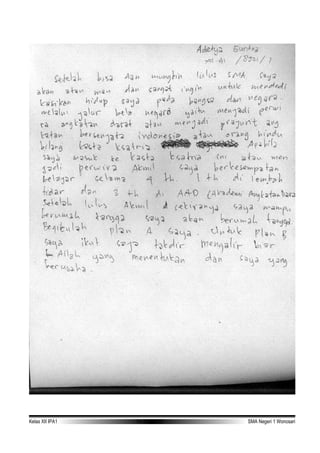 Adetya Guntra
XII A1 /8501/1
Setelah bisa dan mungkin lulus SMA saya
akan atau mau dan sangat ingin untuk mendedi
kasikan hidup saya pada bangsa dan negara.
melalui jalur bela negara yaitu menjadi perwi
ra angkatan darat atau menjadi prajurit ang
katan bersenjata indonesia atau orang hindu
bilang kasta ksatria Apabila
saya masuk ke kasta ksatria ini atau men
jadi perwira Akmil saya berkesempatan
belajar selama 4 th. 1 th di lembah
tidar dan 3 th di AAD
Setelah lulus Akmil sekiranya saya mampu
berumah tangga saya akan berumah tangga.
Begitulah plan A saya. Untuk plan B
saya ikut saja takdir mengalir biar
Allah yang menentukan dan saya yang
berusaha.
Kelas XII IPA1
SMA Negeri 1 Wonosari